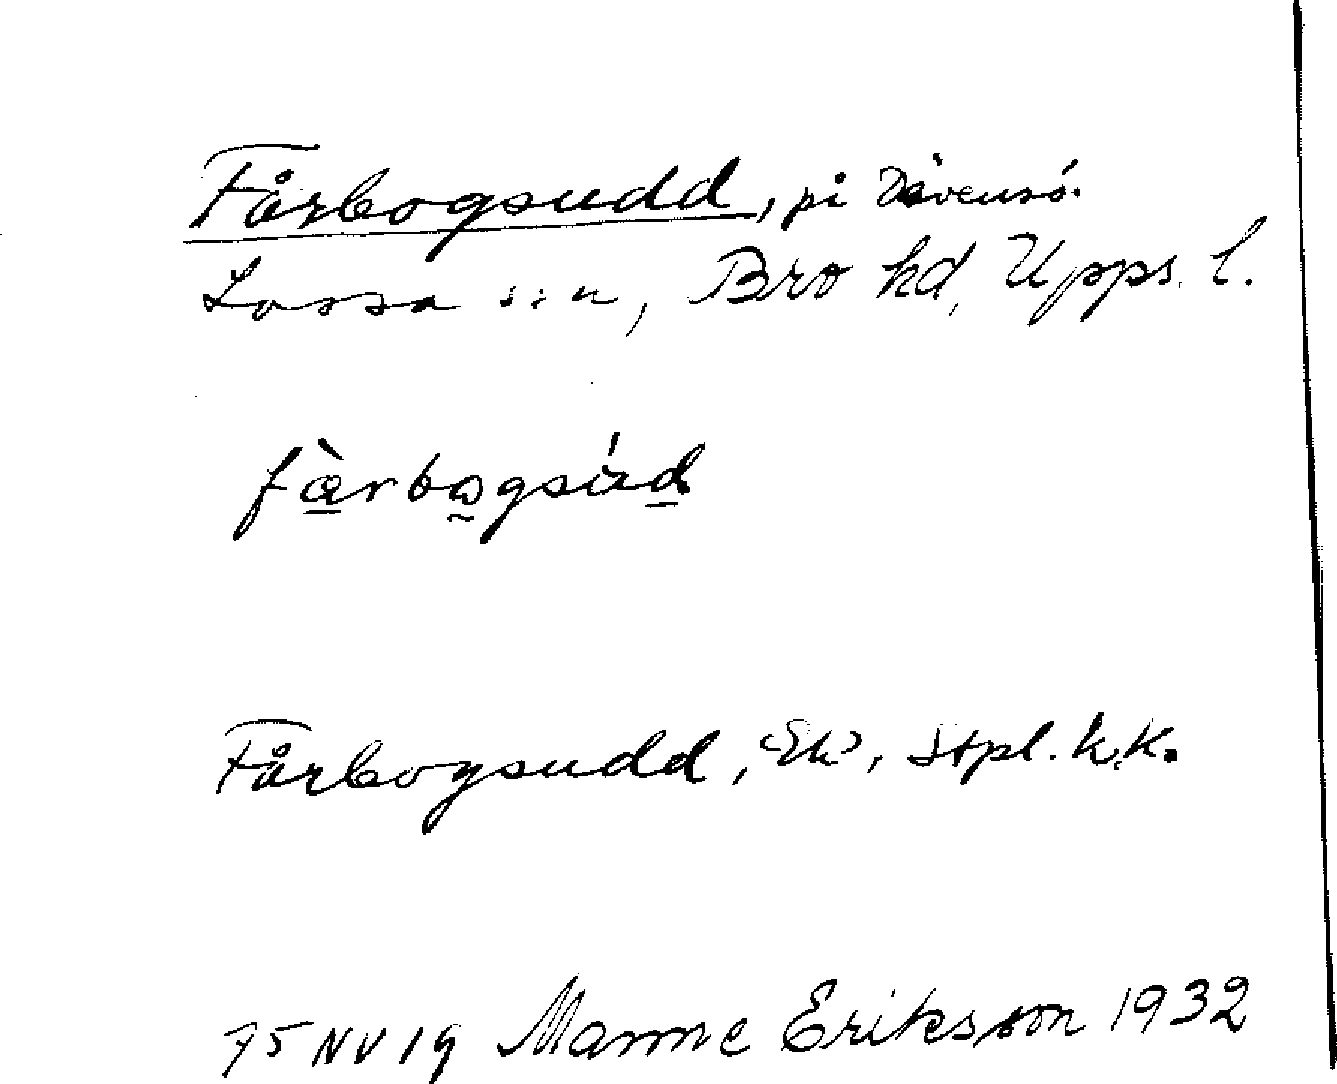 Fårbogsudd, på Dävensö.
Lossa sn, Bro hd, Upps. l.
fàrbogsúd
Fårbogsudd, Ek, stpl. k.k.
75 NV 19 Manne Eriksson 1932